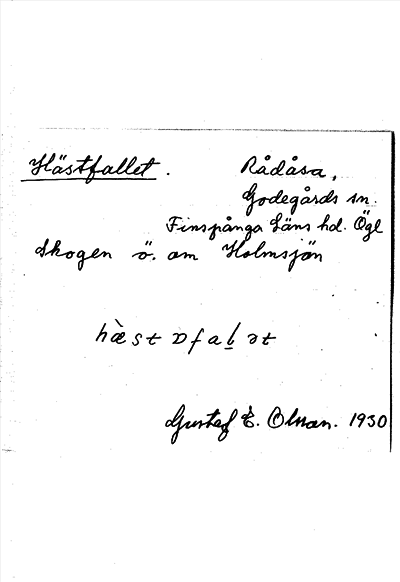 Hästfallet. Rådåsa,
Godegårds sn.
Finspånga läns hd. Ögl
Skogen ö. om Holmsjön
hæ̀stɒfaḷət
Gustaf E. Olsson. 1930